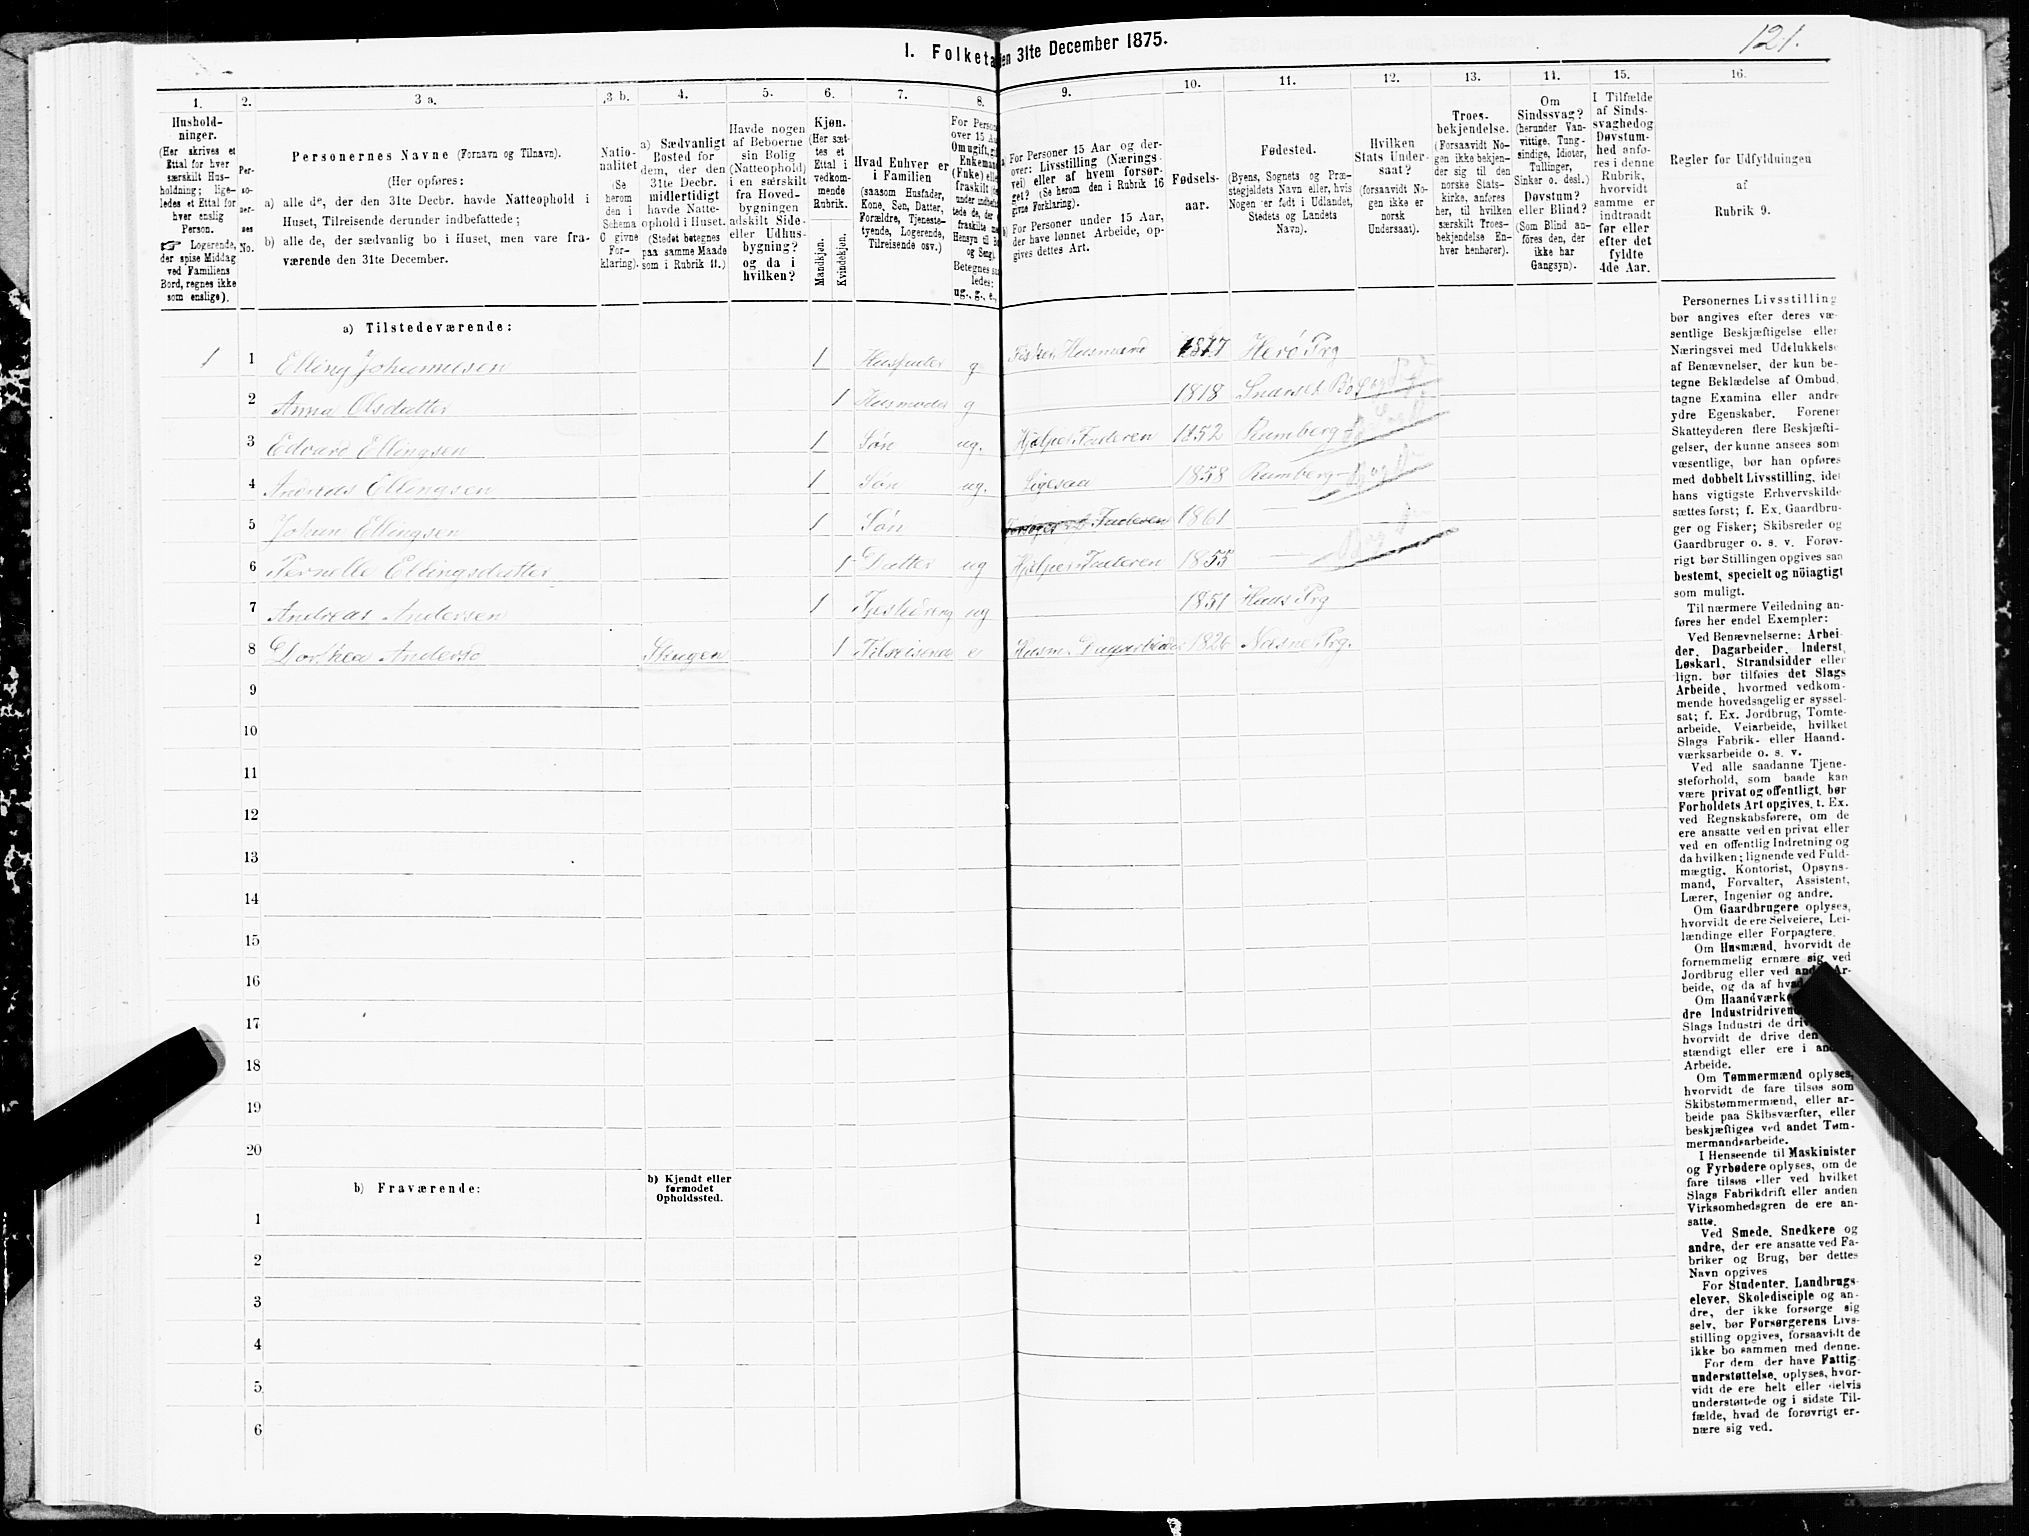 121.
I. Folketa en 31te December 1875.
1. 2. 3 a. 3 b. 4. 5. 6. 7. 8. 9. 10. 11. 12. 13. 14. 15. 16.
Hushold-
ninger.
(Her skrives et
Ettal for hver
særskilt Hus-
holdning; lige-
ledes et Ettal for
hver enslig
Person.
☞ Logerende,
der spise Middag
ved Familiens
Bord, regnes ikke
som enslige).
Per-
so-
ner-
nes
No.
Personernes Navne (Fornavn og Tilnavn).
(Her opføres:
a) alle de, der den 31te Decbr. havde Natteophold i
Huset, Tilreisende derunder indbefattede;
b) alle de, der sædvanlig bo i Huset, men vare fra-
værende den 31te December.
Natio-
nalitet
(Se
herom
den i
Schema
C givne
For-
klaring).
a) Sædvanligt
Bosted for
dem, der den
31te Decbr.
midlertidigt
havde Natte-
ophold i Huset.
(Stedet betegnes
paa samme Maade
som i Rubrik 11.)
Havde nogen
af Beboerne
sin Bolig
(Natteophold)
i en særskilt
fra Hoved-
bygningen
adskilt Side-
eller Udhus-
bygning?
og da i
hvilken?
Kjøn.
(Her sæt-
tes et
Ettal i
vedkom-
mende
Rubrik.
Mandkjøn.
Kvindekjøn.
Hvad Enhver er
i Familien
(saasom Husfader,
Kone, Søn, Datter,
Forældre, Tjeneste-
tyende, Logerende,
Tilreisende osv.)
For Person
over 15 Aa
Om ugift, gif
Enkeman
(Enke) elle
fraskilt (o
under indbefat
tede de, der e
fraskilte me
Hensyn til Bo
og Seng).
Betegnes saa
ledes:
ug., g., e.,
a) For Personer 15 Aar og der-
over: Livsstilling (Nærings-
vei) eller af hvem forsør-
get? (Se herom den i Rubrik 16
givne Forklaring).
b) For Personer under 15 Aar,
der have lønnet Arbeide, op-
gives dettes Art.
Fødsels-
aar.
Fødested.
(Byens, Sognets og Præ-
stegjeldets Navn eller, hvis
Nogen er født i Udlandet,
Stedets og Landets
Navn).
Hvilken
Stats Under-
saat?
(forsaavidt No-
gen ikke er
norsk
Undersaat).
Troes-
bekjendelse.
(Forsaavidt No-
gen ikke bekjen-
der sig til den
norske Stats-
kirke, anføres
her, til hvilken
særskilt Troes-
bekjendelse En-
hver henhører).
Om
Sindssvag?
(herunder Van-
vittige, Tung-
sindige, Idioter,
Tullinger,
Sinker o. desl.)
Døvstum?
eller Blind?
(Som Blind an-
føres den, der
ikke har
Gangsyn).
I Tilfælde
af Sinds-
svaghed og
Døvstum-
hed anfø-
res i denne
Rubrik,
hvorvidt
samme er
indtraadt
før eller
efter det
fyldte
4de Aar.
Regler for Udfyldningen
af
Rubrik 9.
a) Tilstedeværende:
1 1 Elling Johannesen 1 Husfader g Fisker Husmand 1817 Herö Prg
2 Anna Olsdatter 1 Husmoder g 1818
3 Edvard Ellingsen 1 Søn ug. Hjelper Faderen 1852 Rumberg
4 Andreas Ellingsen 1 Søn ug. Ligesaa 1858 Rumberg
5 Johan Ellingsen 1 Søn Faderen 1861 —
6 Pernelle Ellingsdatter 1 Datter ug Hjelper Faderen 1855 —
7 Andreas Andersen 1 Tjestedreng ug 1851 Prg
8 Dorthea Anders 1 Tilreisende e Husm. Dagarbeider 1826 Nesne Prg.
9
10
11
12
13
14
15
16
17
18
19
20
b) Fraværende:
b) Kjendt eller
formodet
Opholdssted.
1
2
3
4
5
6
Personernes Livsstilling
bør angives efter deres væ-
sentlige Beskjæftigelse eller
Næringsvei med Udelukkelse
af Benævnelser, der kun be-
tegne Beklædelse af Ombud,
tagne Examina eller andre
ydre Egenskaber. Forener
Skatteyderen flere Beskjæfti-
gelser, der kunne ansees som
væsentlige, bør han opføres
med dobbelt Livsstilling, idet
hans vigtigste Erhvervskilde
sættes først; f. Ex. Gaardbru-
ger og Fisker; Skibsreder og
Gaardbruger o. s. v. Forøv-
rigt bør Stillingen opgives saa
bestemt, specielt og nöiagtigt
som muligt.
Til nærmere Veiledning an-
føres her endel Exempler:
Ved Benævnelserne: Arbei-
der, Dagarbeider, Inderst,
Løskarl, Strandsidder eller
lign. bør tilføies det Slags
Arbeide, hvormed vedkom-
mende hovedsagelig er syssel-
sat; f. Ex. Jordbrug, Tomte-
arbeide, Veiarbeide, hvilket
Slags Fabrik- eller Haand-
værksarbeide o. s. v.
Ved alle saadanne Tjene-
steforhold, som baade kan
være privat og offentligt, bør
Forholdets Art opgives, t. Ex.
ved Regnskabsførere, om de
ere ansatte ved en privat eller
ved en offentlig Indretning og
da hvilken; lignende ved Fuld-
mægtig, Kontorist, Opsyns-
mand, Forvalter, Assistent,
Lærer, Ingeniør og andre.
Om Gaardbrugere oplyses,
hvorvidt de ere Selveiere, Lei-
lændinge eller Forpagtere.
Om Husmænd, hvorvidt de
fornemmelig ernære sig ved
Jordbrug eller ved andet Ar-
beide, og da af hvad
Om Haandværke
dre Industridriven
Slags Industri de driv
hvorvidt de drive den
stændigt eller ere i and
Arbeide.
Om Tømmermænd oplyses,
hvorvidt de fare tilsøs som
Skibstømmermænd, eller ar-
beide paa Skibsværfter, eller
beskjæftiges ved andet Tøm-
mermandsarbeide.
I Henseende til Maskinister
og Fyrbødere oplyses, om de
fare tilsøs eller ved hvilket
Slags Fabrikdrift eller anden
Virksomhedsgren de ere an-
satte.
Ved Smede, Snedkere og
andre, der ere ansatte ved Fa-
briker og Brug, bør dettes
Navn opgives
For Studenter, Landbrugs-
elever, Skoledisciple og an-
dre, der ikke forsørge sig
selv, bør Forsørgerens Livs-
stilling opgives, forsaavidt de
ikke bo sammen med denne.
For dem der have Fattig-
understøttelse, oplyses, hvor-
vidt de ere helt eller delvis
understøttede og i sidste Til-
fælde, hvad de forøvrigt er-
nære sig ved.